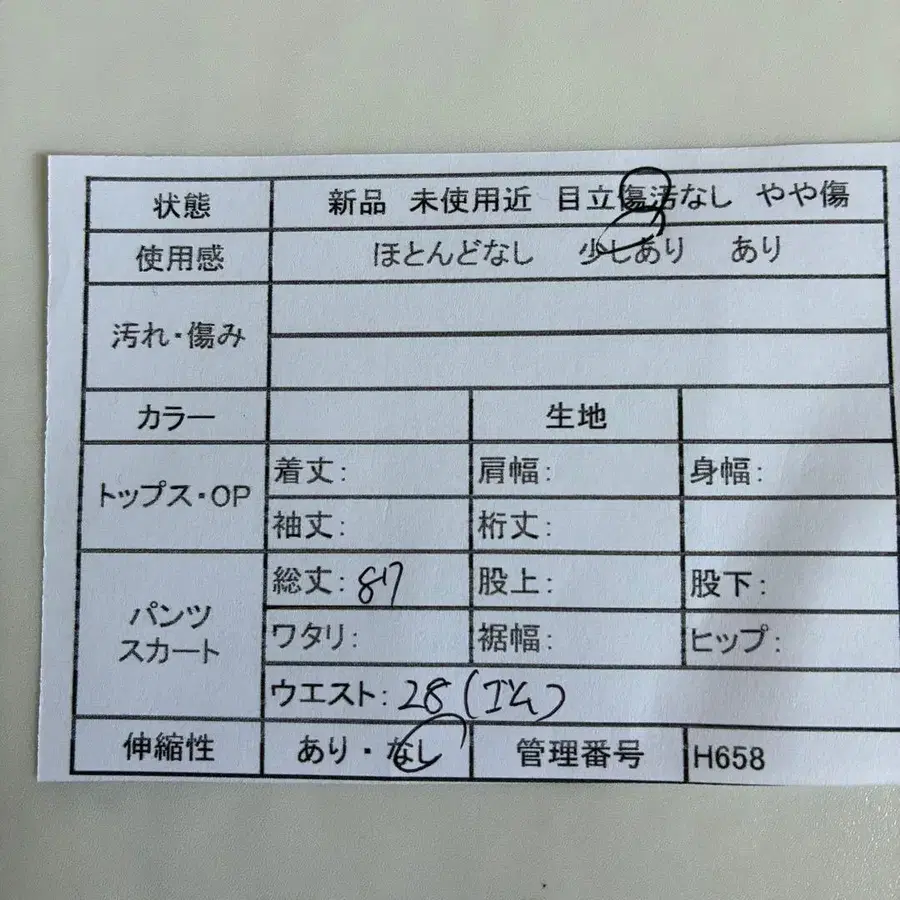 状態 新品 未使用近 目立傷汚なし やや傷
使用感 ほとんどなし 少しあり あり
汚れ・傷み
カラー 生地
トップス・OP
着丈: 肩幅: 身幅:
袖丈: 裄丈:
パンツ
スカート
総丈: 87 股上: 股下:
ワタリ: 裾幅: ヒップ:
ウエスト: 28 (ゴム)
伸縮性 あり・なし 管理番号 H658